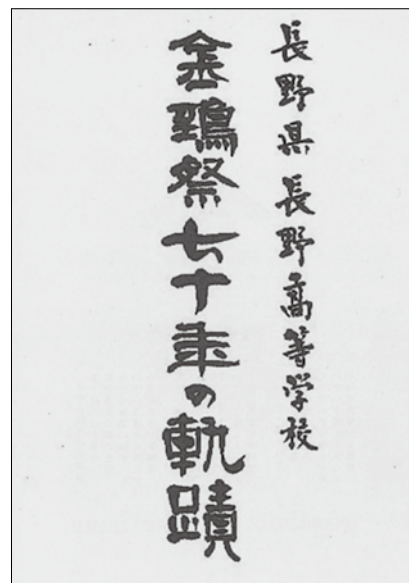 長野県長野高等学校
金鵄祭七十年の軌蹟